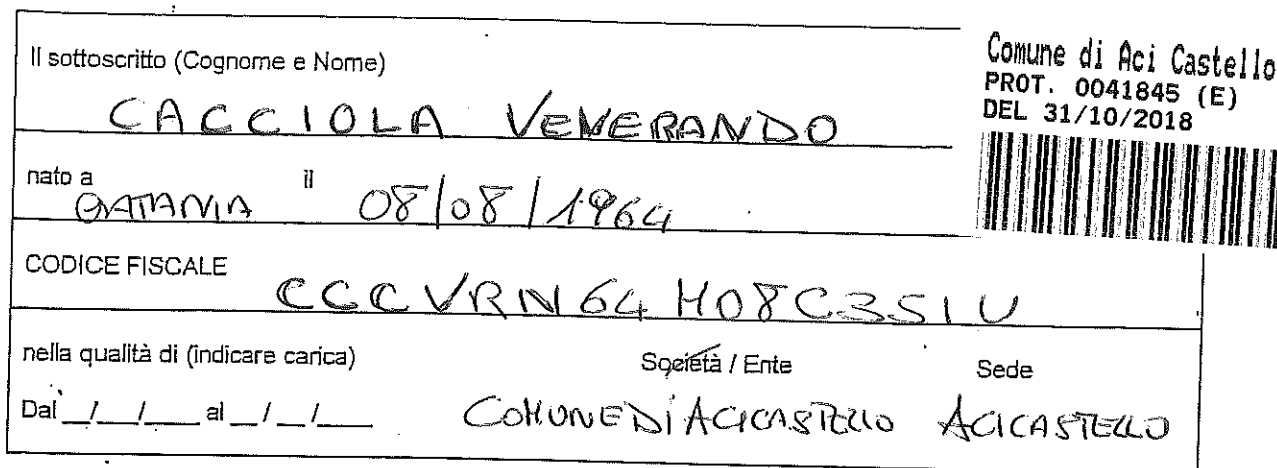 Il sottoscritto (Cognome e Nome)
CACCIOLA VENERANDO
Comune di Aci Castello
PROT. 0041845 (E)
DEL 31/10/2018
nato a il
CATANIA 08/08/1964
CODICE FISCALE
CCCVRN64M08C351U
nella qualità di (indicare carica) Società / Ente Sede
Dal __/__/____ al __/__/____ COMUNE DI ACICASTELLO ACICASTELLO